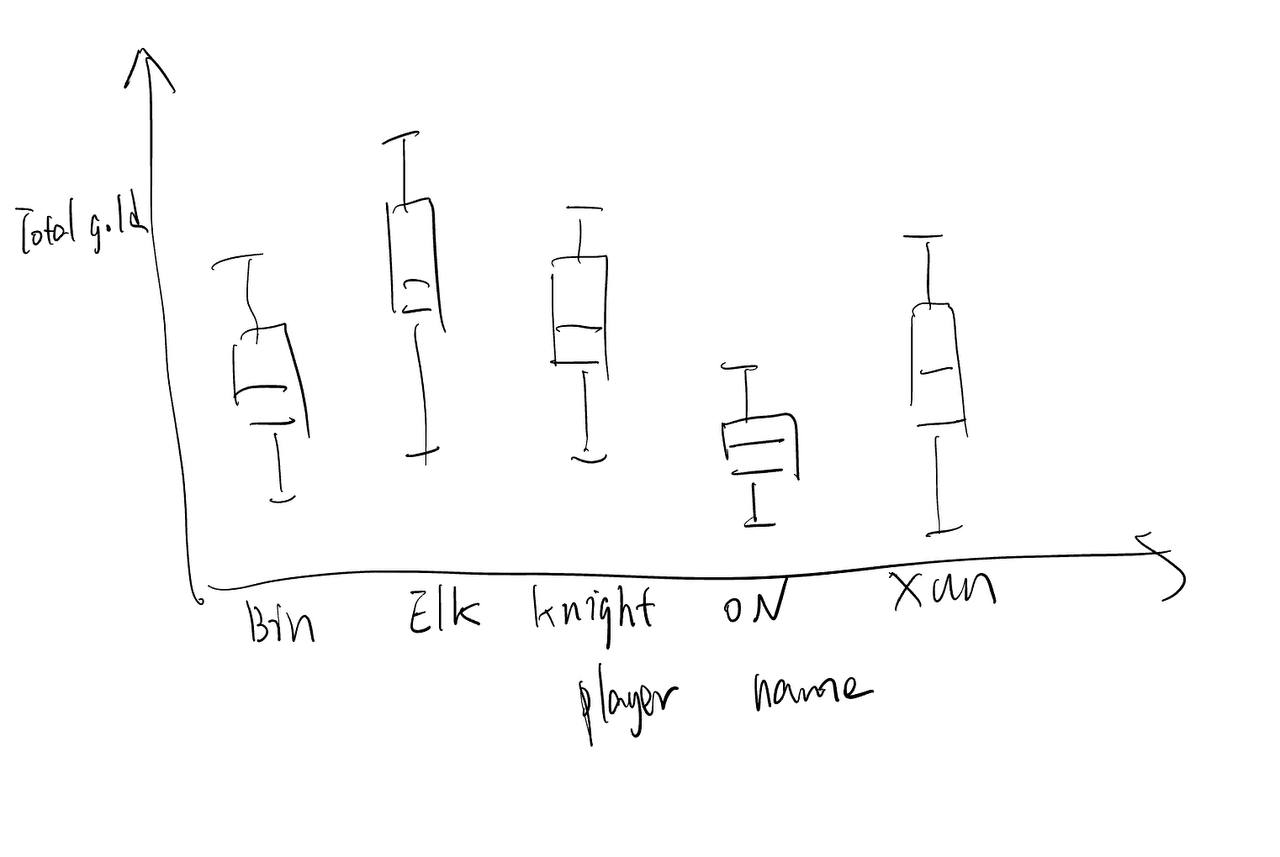 Total gold
Bin Elk knight ON Xun
player name